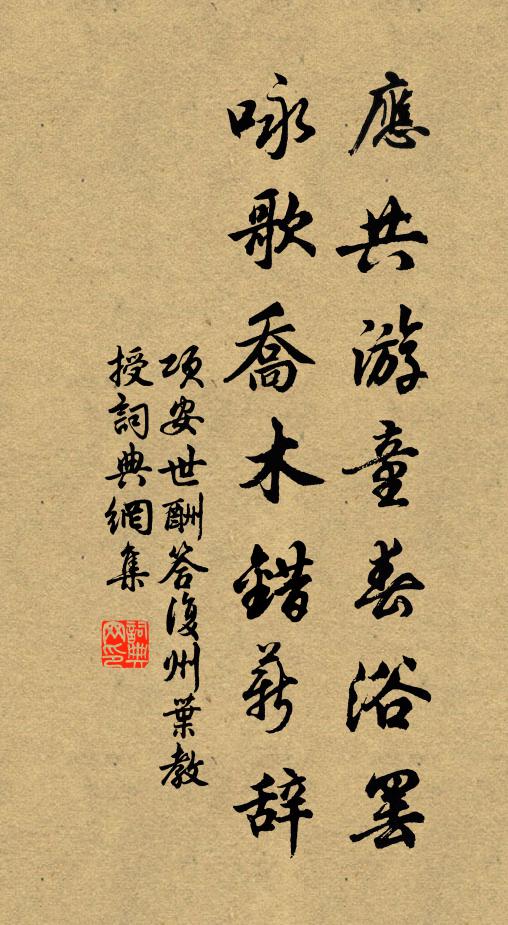 應共游童春浴罷
咏歌喬木錯薪辞
項安世酬答復州葉教
授詞典網集
詞典
网印